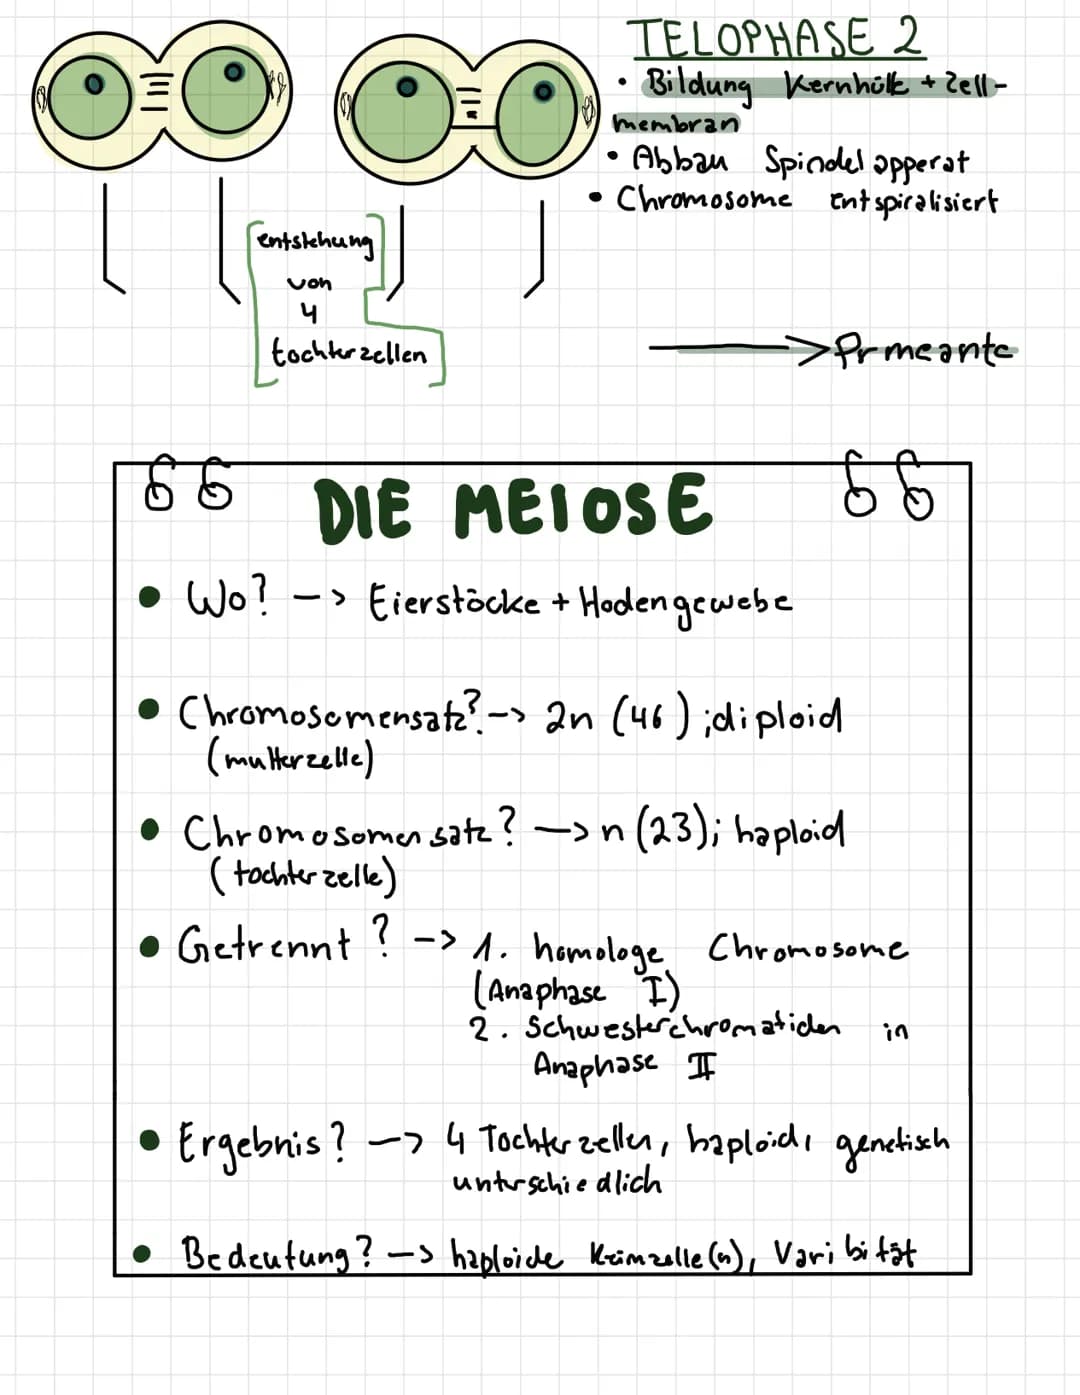 TELOPHASE 2
• Bildung Kernhülle + Zell-
membran
• Abbau Spindelapperat
• Chromosome entspiralisiert
entstehung
von
4
tochterzellen
DIE MEIOSE
• Wo? --> Eierstöcke + Hodengewebe
• Chromosomensatz? --> 2n (46); diploid
(mutterzelle)
• Chromosomensatz? --> n (23); haploid
(tochterzelle)
• Getrennt? --> 1. homologe Chromosome
(Anaphase I)
2. Schwesterchromatiden in
Anaphase II
• Ergebnis? --> 4 Tochterzellen, haploid, genetisch
unterschiedlich
• Bedeutung? --> haploide Keimzelle(n), Varibität